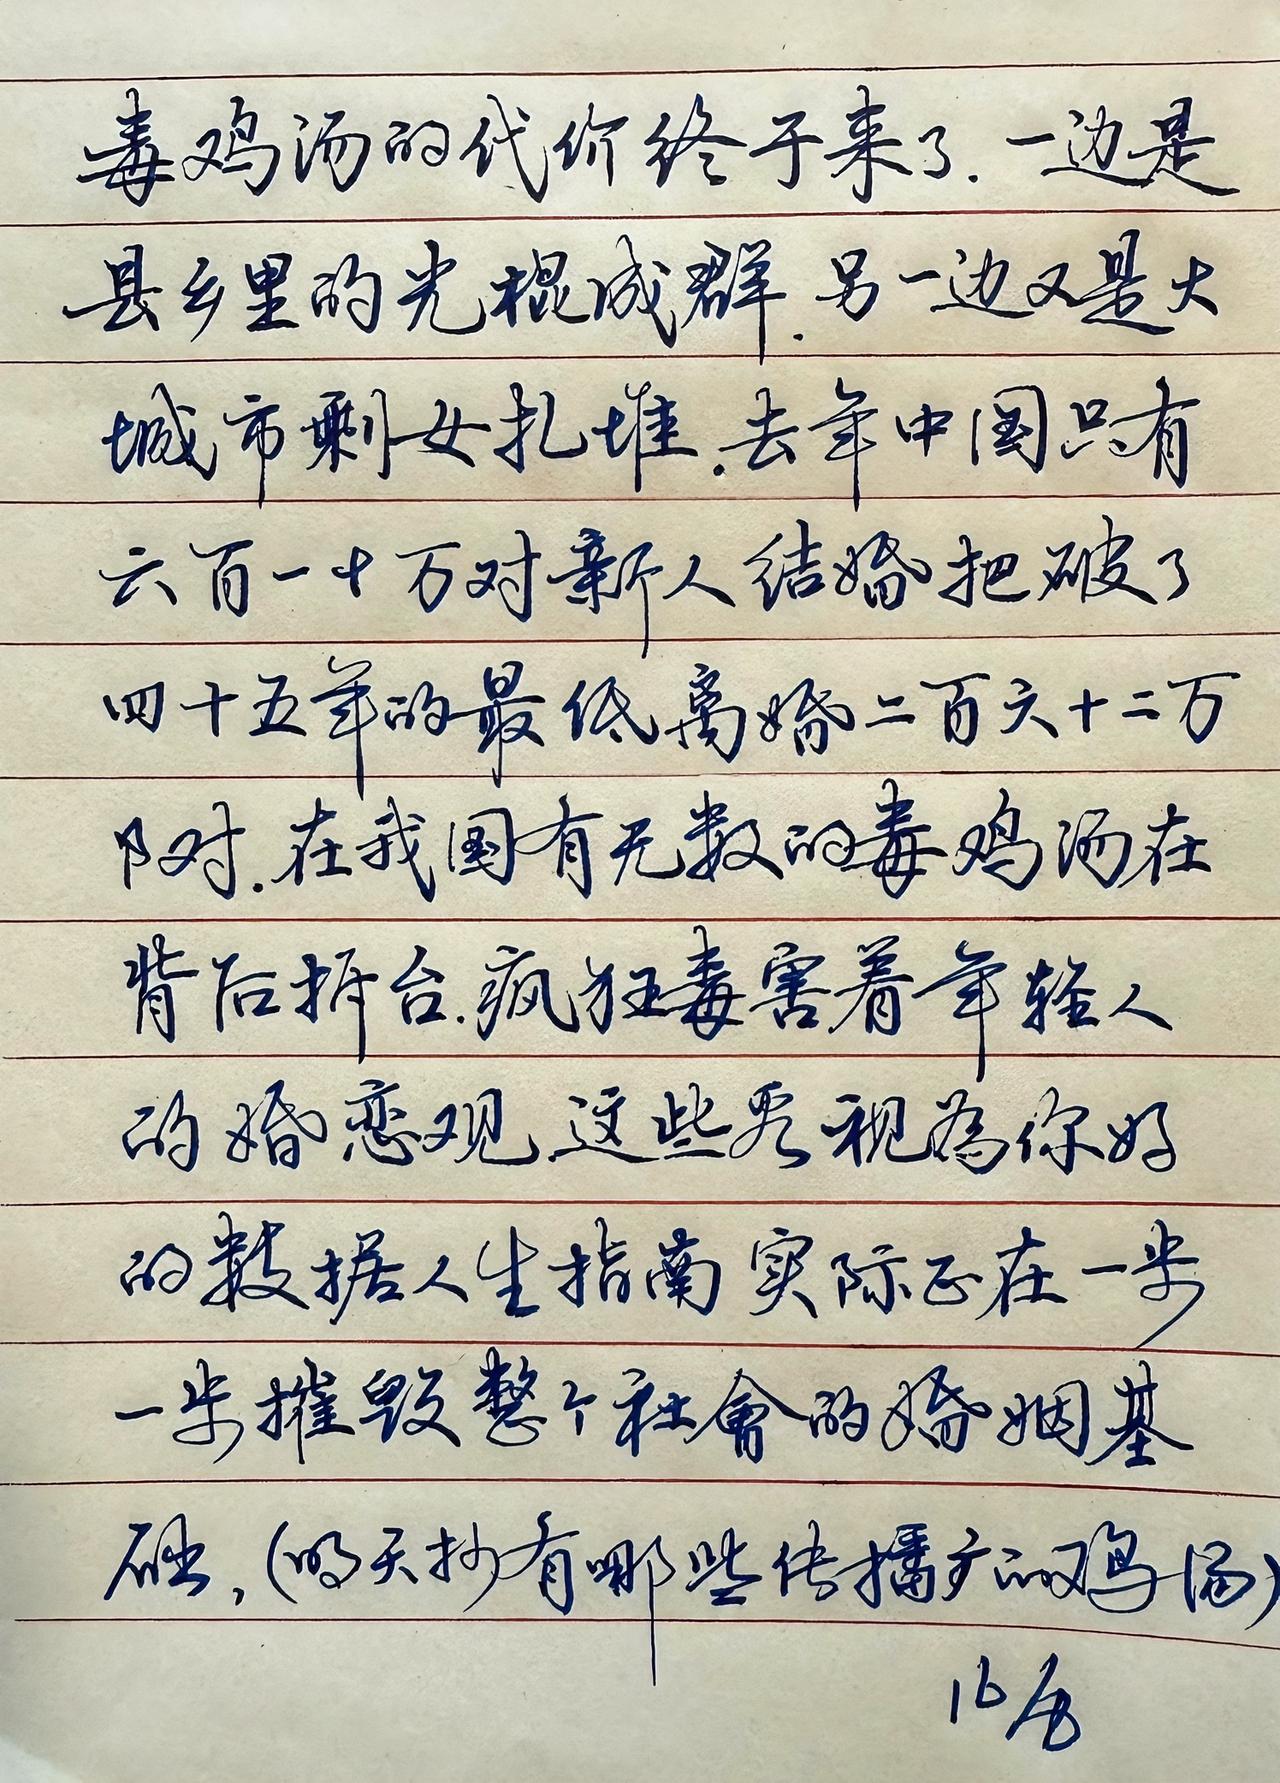 毒鸡汤的代价终于来了.一边是
县乡里的光棍成群.另一边又是大
城市剩女扎堆.去年中国只有
六百一十万对新人结婚把破了
四十五年的最低离婚二百六十二万
对.在我国有无数的毒鸡汤在
背后拆台.疯狂毒害着年轻人
的婚恋观.这些看视为你好
的数据人生指南实际正在一步
一步摧毁整个社會的婚姻基
础,(明天抄有哪些传播广的鸡汤)